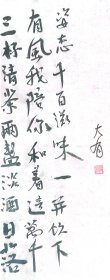 三杯清茶两盏淡酒日落
有风我陪你和着这万千
千百滋味一并饮下
大有